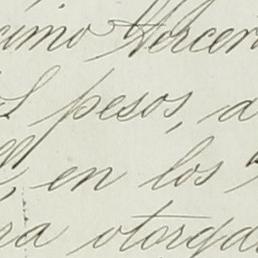 cimo Tercero
pesos, a
en los
ra otorga